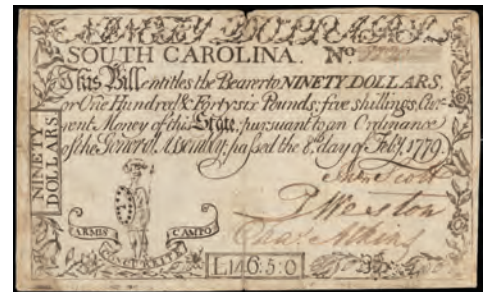 NINETY DOLLARS
SOUTH CAROLINA. No
This Bill entitles the Bearer to NINETY DOLLARS,
or One Hundred & Fortysix Pounds; five shillings, Cur-
rent Money of this State; pursuant to an Ordinance
of the General Assembly, passed the 8th day of Feby, 1779.
NINETY
DOLLARS
Scott
P Weston
Chas Atkins
ARMIS CAMPO
L146:5:0